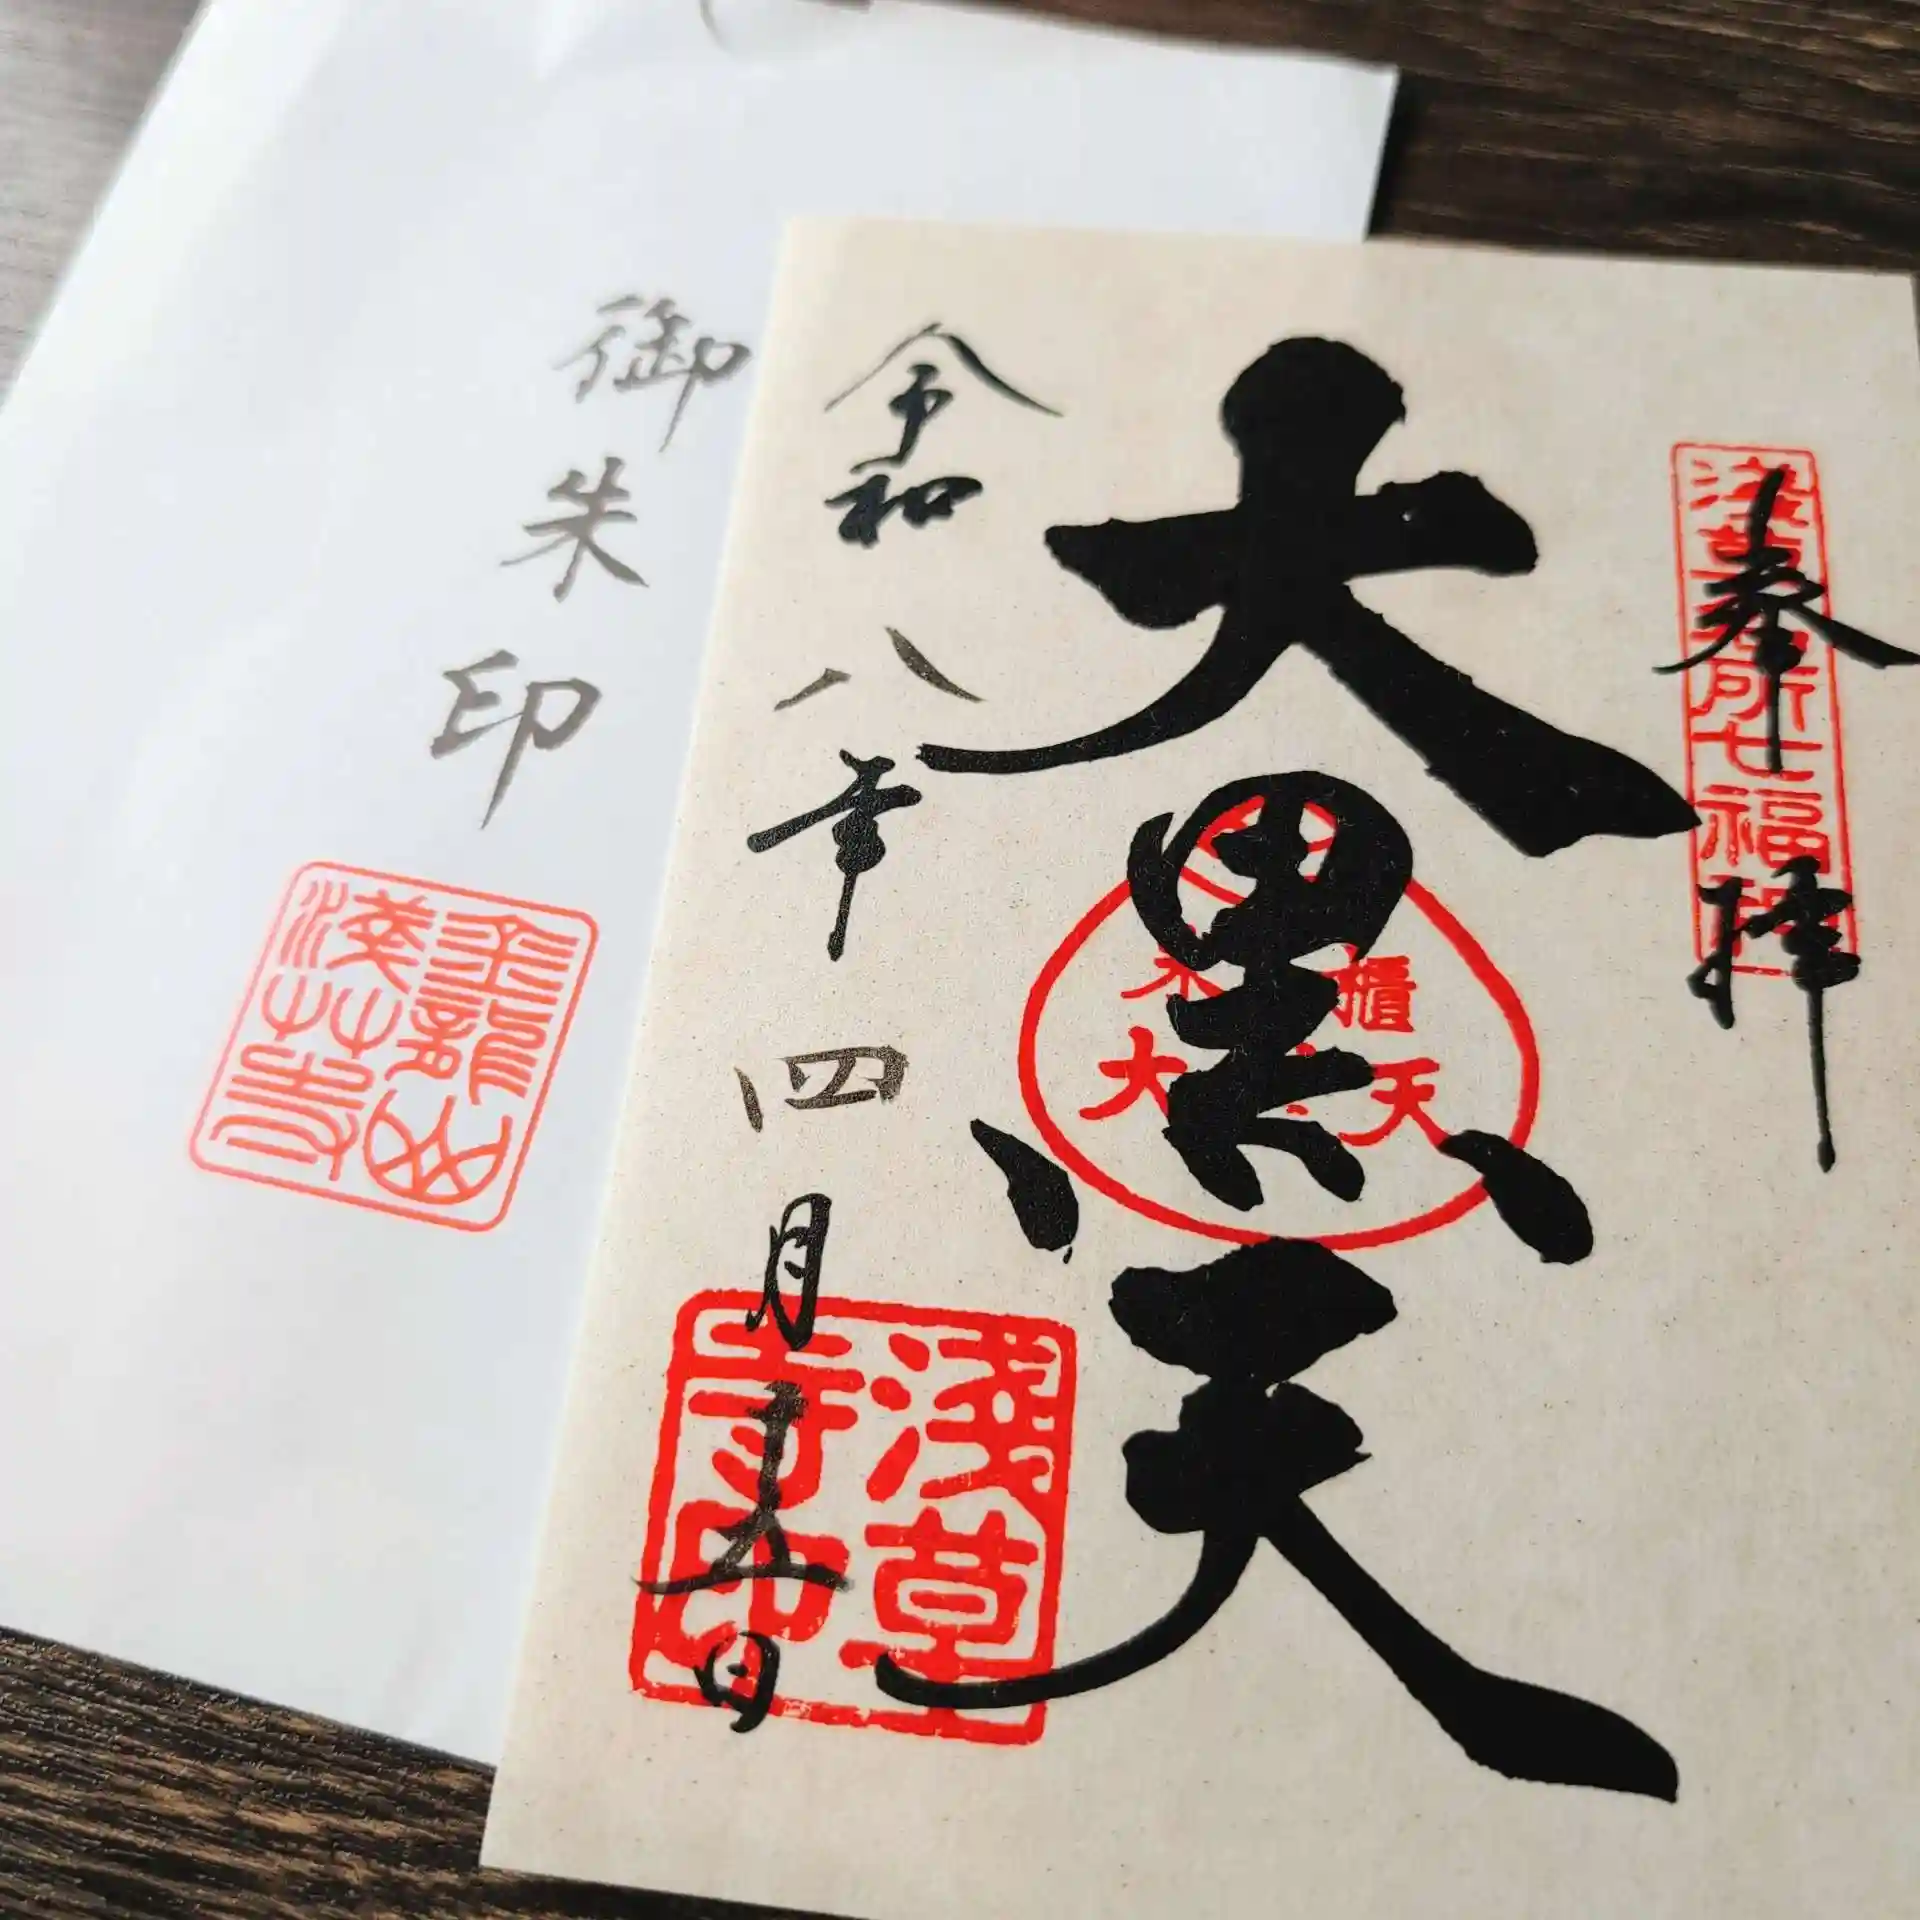 奉拝
浅草名所七福神
大黒天
米櫃
大黒天
令和八年四月十五日
浅草
寺印
御朱印
金龍山
浅草寺